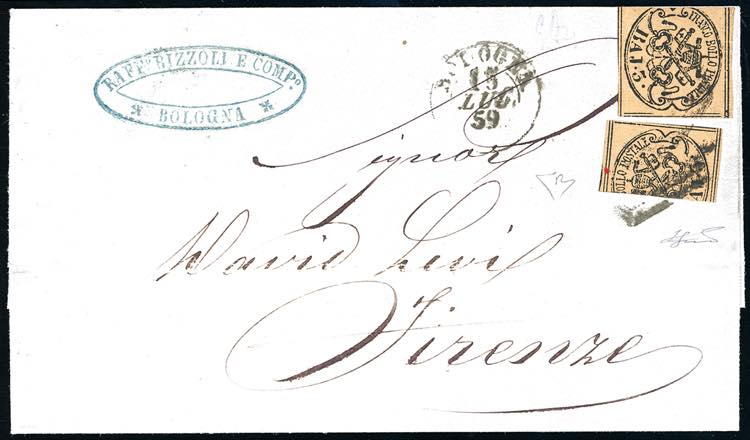 RAFFᵉ RIZZOLI E COMPº
BOLOGNA
BOLOGNA
15
LUG
59
FRANCO BOLLO POSTALE
BAJ. 5
BOLLO POSTALE
Signor
David Levi
Firenze